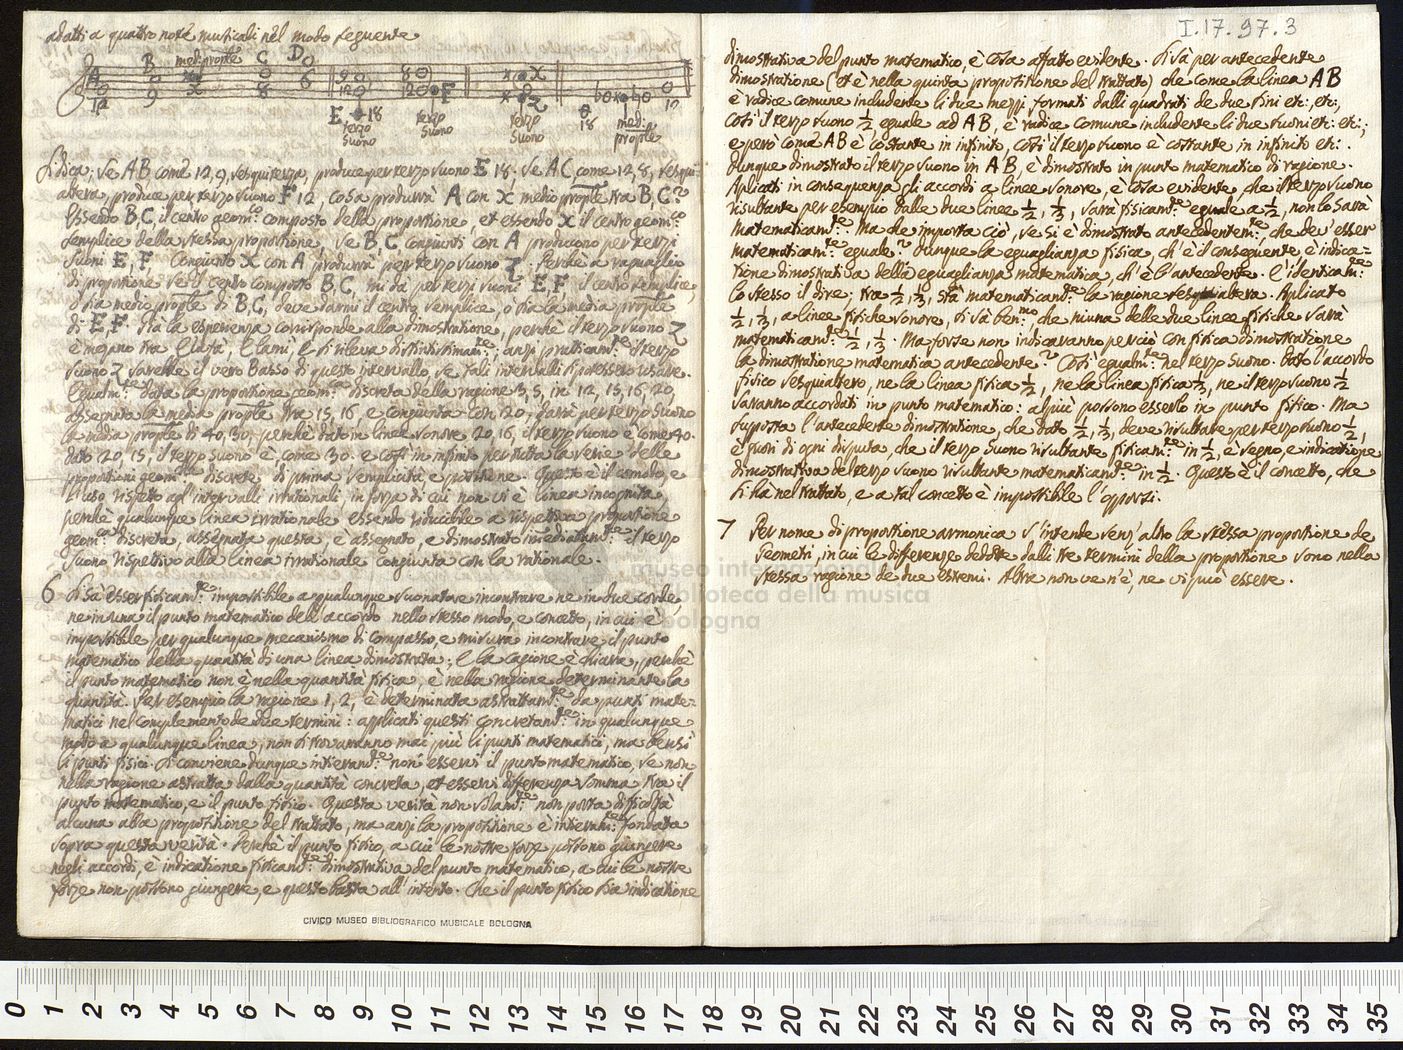 adatti a quattro note musicali nel modo seguente
A B med: propľe C D
12 9 x 8 6 9 12 8 12 F x x
E 18 18 12
terzo suono terzo suono terzo suono med: propľe
Si dica; se AB come 12, 9, sesquiterza, produce per terzo suono E 18. Se AC, come 12, 8, sesqui=
altera, produce per terzo suono F 12, cosa produrrà A con X medio propľe tra B, C?
Essendo B, C, il centro geom:co composto della proporzione, et essendo X il centro geom:co
semplice della stessa proporzione, se B, C congiunti con A producono per terzi
suoni E, F. Congiunto X con A produrrà per terzo suono Z. Perchè a ragguaglio
di proporzione se il centro composto B, C, mi dà per terzi suoni E, F il centro semplice,
o sia medio propľe di B, C, deve darmi il centro semplice, o sia la media propľe
di E, F. Ma la esperienza corrisponde alla dimostrazione, perchè il terzo suono Z
è mezano tra Elafà, Elamì, e si rileva distintissimam:te; anzi praticam:te il terzo
suono Z sarebbe il vero Basso di questo intervallo, se tali intervalli si potessero usare.
Egualm:te data la proporzione geom:ca discreta della ragione 3, 5, in 12, 15, 16, 20,
assegnata la media propľe tra 15, 16, e congiunta con 20, darà per terzo suono
la media propľe di 40, 30, perchè dato in linee sonore 20, 16, il terzo suono è come 40.
dato 20, 15, il terzo suono è, come 30. e così in infinito per tutta la serie delle
proporzioni geom:che discrete di prima semplicità e posizione. Questo è il comodo, e
l'uso rispetto agl'intervalli irrationali in forza di cui non vi è linea incognita,
perchè qualunque linea irrationale essendo riducibile a rispettiva proporzione
geom:ca discreta, assegnata questa, è assegnato, e dimostrato imediatam:te il terzo
suono rispettivo alla linea irrationale congiunta con la rationale.
6 Si sà esser fisicam:te impossibile a qualunque suonatore incontrare ne in due corde,
ne in una il punto matematico dell'accordo nello stesso modo, e concetto, in cui è
impossibile per qualunque mecanismo di compasso, e misura incontrare il punto
matematico della quantità di una linea dimostrata; E la cagione è chiara, perchè
il punto matematico non è nella quantità fisica, è nella ragione determinante la
quantità. Per esempio la ragione 1, 2, è determinata astrattam:te da punti mate=
matici nel complemento de due termini: applicati questi concretam:te in qualunque
modo a qualunque linea, non si trovaranno mai più li punti matematici, ma bensì
li punti fisici. Si conviene dunque intieram:te non esservi il punto matematico, se non
nella ragione astratta dalla quantità concreta, et esservi differenza somma tra il
punto matematico, e il punto fisico. Questa verità non solam:te non porta difficoltà
alcuna alla proposizione del trattato, ma anzi la proposizione è intieram:te fondata
sopra questa verità. Perchè il punto fisico, a cui le nostre forze possono giungere
negli accordi, è indicatione fisicam:te dimostrativa del punto matematico, a cui le nostre
forze non possono giungere, e questo basta all'intento. Che il punto fisico sia indicatione
CIVICO MUSEO BIBLIOGRAFICO MUSICALE BOLOGNA
I.17.97.3
dimostrativa del punto matematico, è cosa affatto evidente. Si sà per antecedente
dimostratione (et è nella quinta propositione del trattato) che come la linea AB
è radice comune includente li due mezzi formati dalli quadrati de due fini etc:, etc:,
così il terzo suono 1/2 eguale ad AB, è radice comune includente li due suoni etc: etc:;
e però come AB è costante in infinito, così il terzo suono è costante in infinito etc:.
Dunque dimostrato il terzo suono in AB, è dimostrato in punto matematico di ragione.
Aplicati in conseguenza gli accordi a linee sonore, è cosa evidente, che il terzo suono
risultante per esempio dalle due linee 1/2, 1/3, sarà fisicam:te eguale a 1/2, non lo sarà
matematicam:te. Ma che importa ciò, se si è dimostrato antecedentem:te, che dev'esser
matematicam:te eguale? Dunque la eguaglianza fisica, ch'è il conseguente, è indica=
tione dimostrativa della eguaglianza matematica, ch'è l'antecedente. E l'identicam:te
lo stesso il dire; tra 1/2, 1/3, stà matematicam:te la ragione sesquialtera. Aplicato
1/2, 1/3, a linee fisiche sonore, si sà ben:mo che niuna delle due linee fisiche sarà
matematicam:te 1/2, 1/3. Ma forse non indicaranno perciò con fisica dimostratione
la dimostratione matematica antecedente? Così egualm:te nel terzo suono. Dato l'accordo
fisico sesquialtero, ne la linea fisica 1/2, ne la linea fisica 1/3, ne il terzo suono 1/2
saranno accordati in punto matematico: al più possono esserlo in punto fisico. Ma
supposta l'antecedente dimostratione, che dato 1/2, 1/3, deve risultare per terzo suono 1/2,
è fuori di ogni disputa, che il terzo suono risultante fisicam:te in 1/2, è segno, e indicatione
dimostrativa del terzo suono risultante matematicam:te in 1/2. Questo è il concetto, che
si hà nel trattato, e a tal concetto è impossibile l'opporsi.
7 Per nome di proportione armonica s'intende senz'altro la stessa proportione de
Geometri, in cui le differenze dedotte dalli tre termini della proportione sono nella
stessa ragione de due estremi. Altra non ve n'è, ne vi può essere.
museo internazionale
biblioteca della musica
di bologna
0 1 2 3 4 5 6 7 8 9 10 11 12 13 14 15 16 17 18 19 20 21 22 23 24 25 26 27 28 29 30 31 32 33 34 35